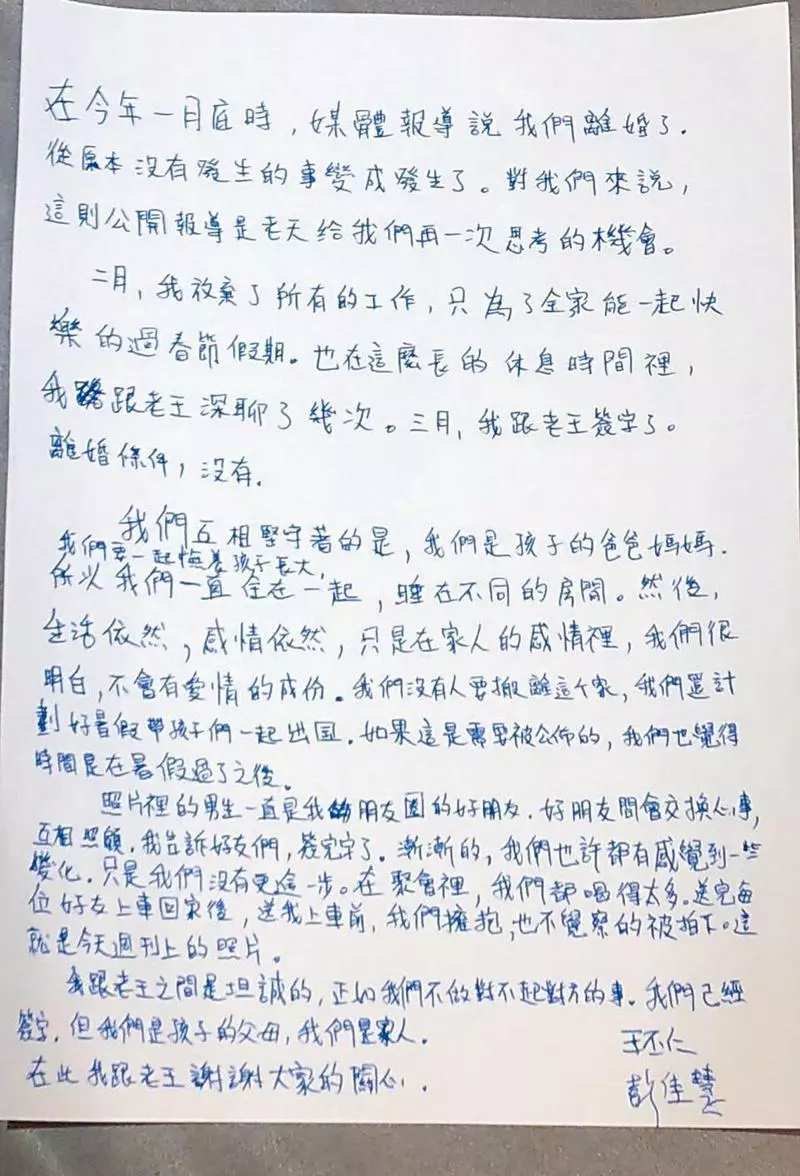 在今年一月底時，媒體報導說我們離婚了.
從原本沒有發生的事變成發生了。對我們來說，
這則公開報導是老天給我們再一次思考的機會。
二月，我放棄了所有的工作，只為了全家能一起快
樂的過春節假期。也在這麼長的休息時間裡，
我跟老王深聊了幾次。三月，我跟老王簽字了。
離婚條件，沒有.
我們互相堅守著的是，我們是孩子的爸爸媽媽.
我們要一起撫養孩子長大，
所以我們一直住在一起，睡在不同的房間。然後，
生活依然，感情依然，只是在家人的感情裡，我們很
明白，不會有愛情的成份。我們沒有人要搬離這个家，我們還計
劃好暑假帶孩子們一起出国.如果這是需要被公佈的，我們也覺得
時間是在暑假過了之後。
照片裡的男生一直是我的朋友圈的好朋友.好朋友間會交換心事，
互相照顧.我告訴好友們，簽完字了.漸漸的，我們也許都有感覺到一些
變化.只是我們沒有更進一步。在聚會裡，我們都喝得太多.送完每
位好友上車回家後，送我上車前，我們擁抱，也不覺察的被拍下。這
就是今天週刊上的照片。
我跟老王之間是坦誠的，正如我們不做對不起對方的事.我們已經
簽字，但我們是孩子的父母，我們是家人.
在此我跟老王謝謝大家的關心.
王丕仁
彭佳慧